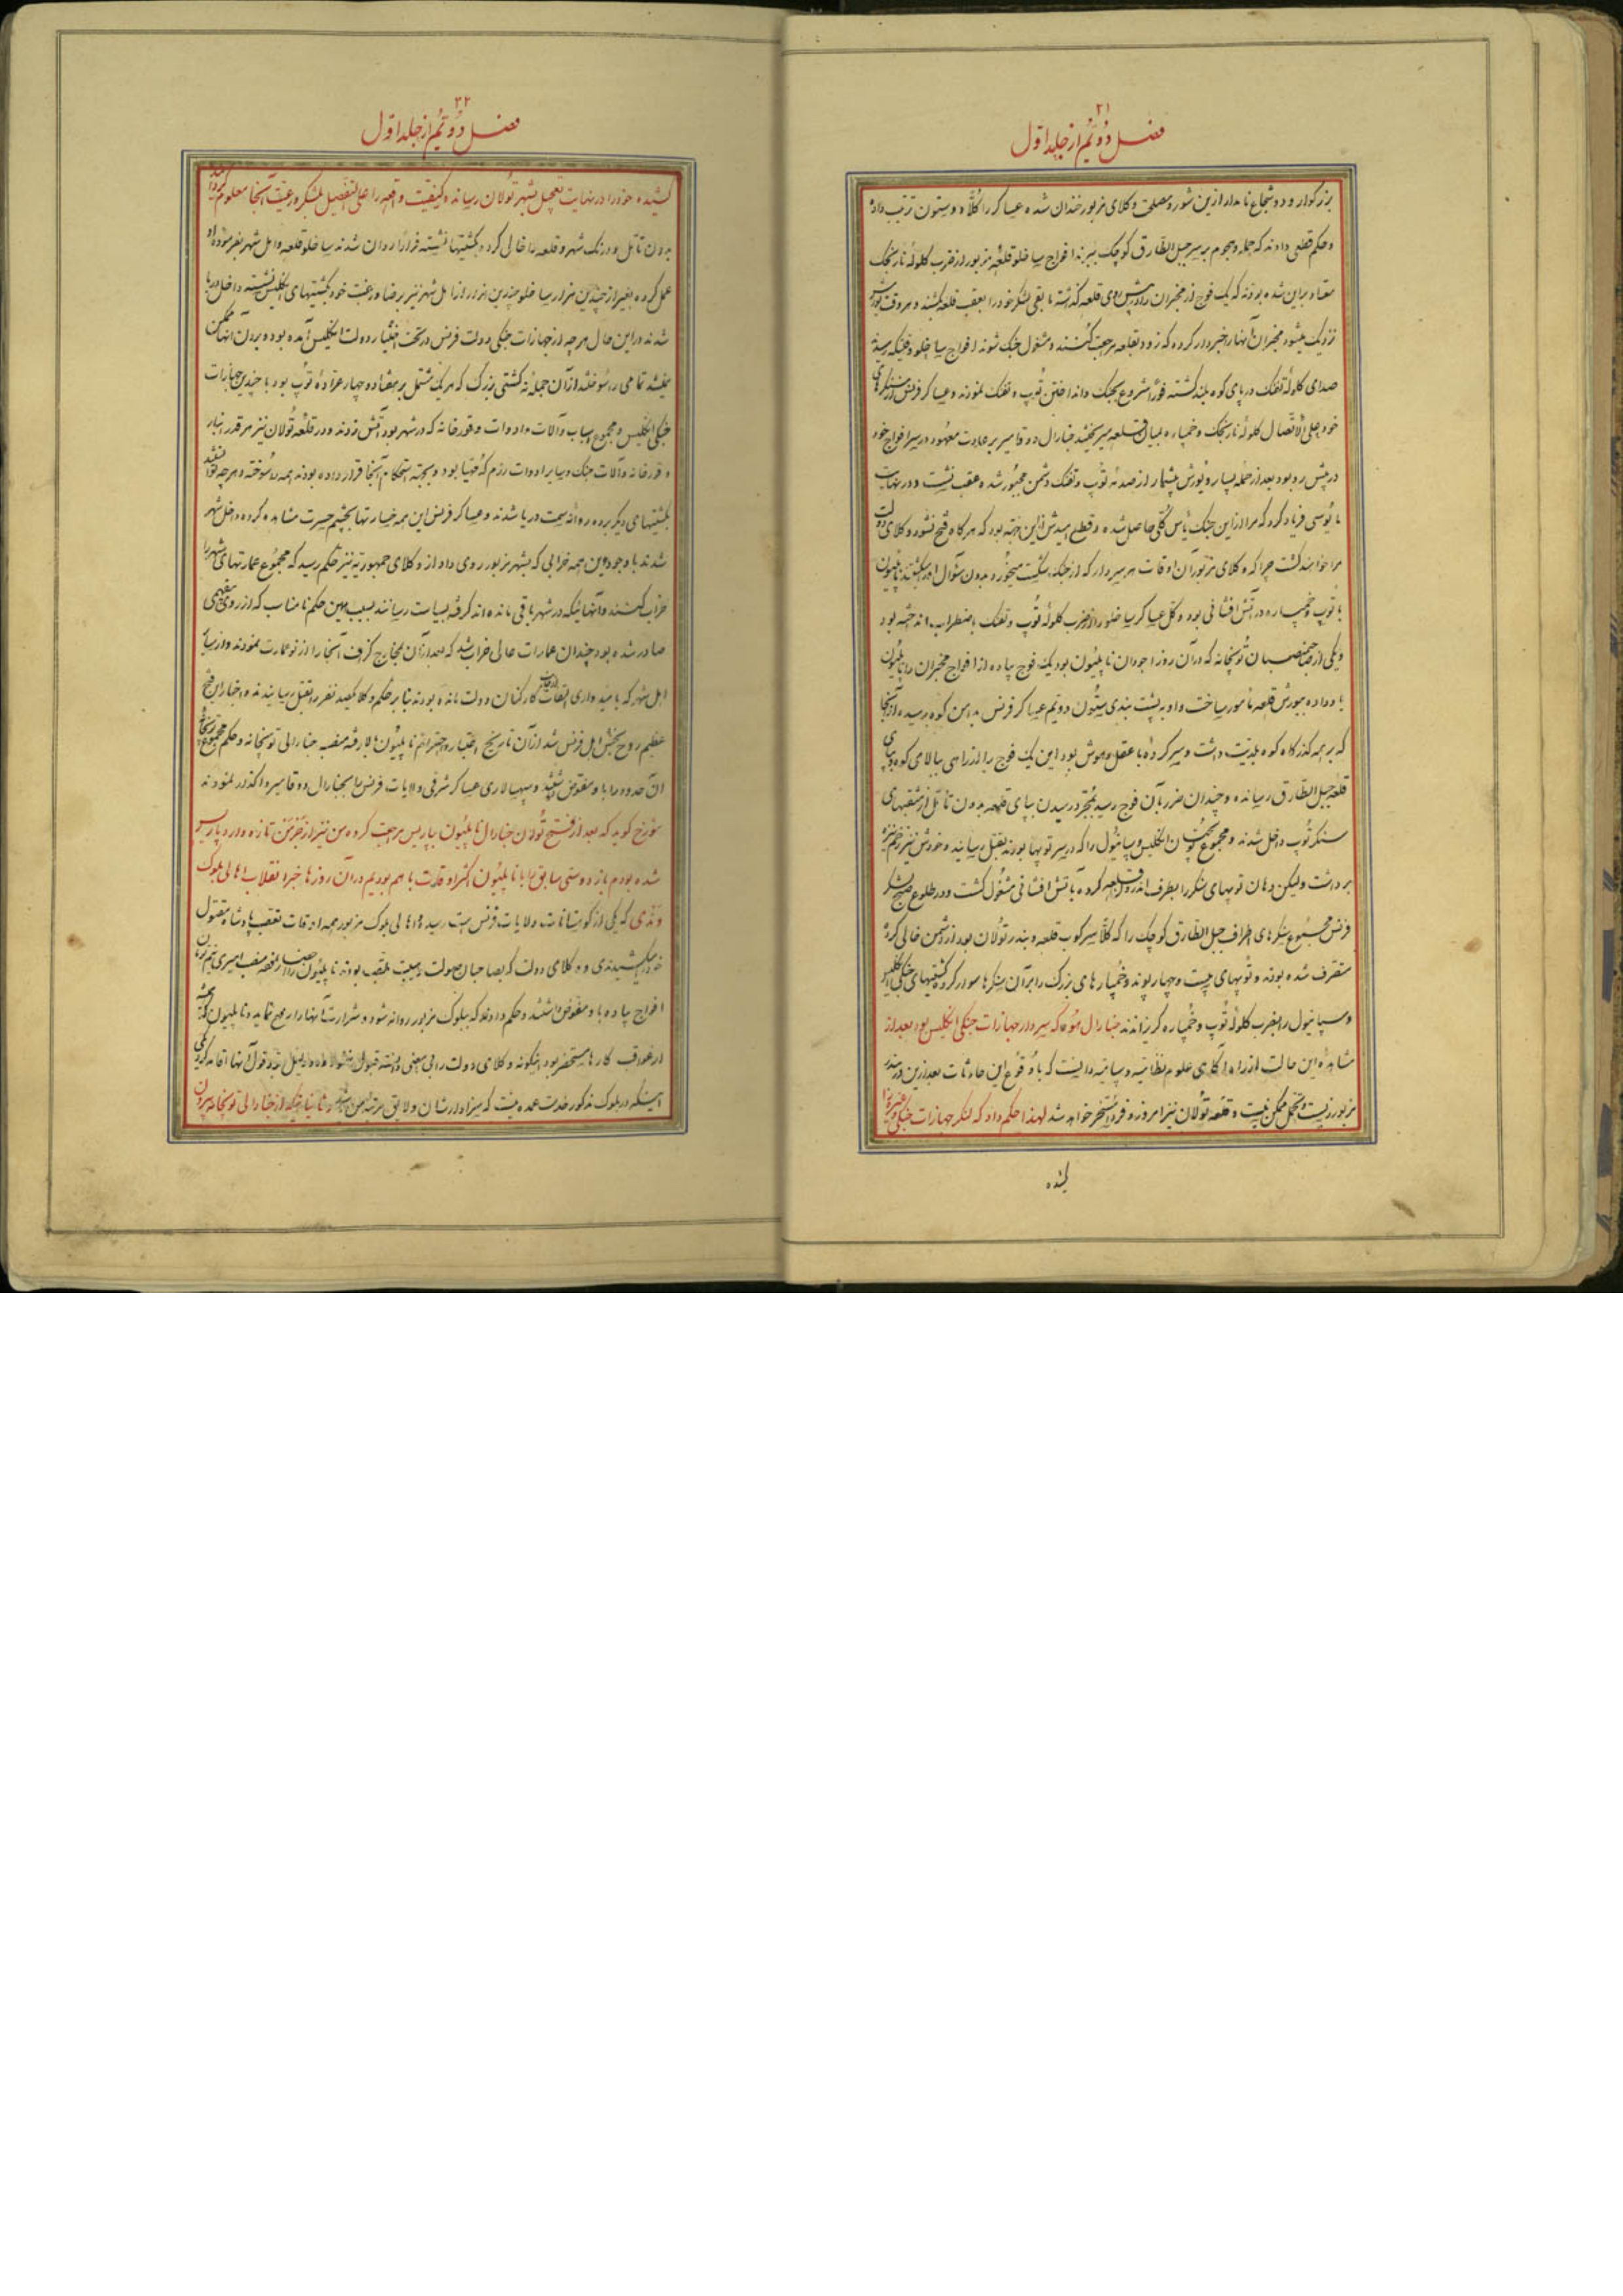 ۲۱
فصل دوئیم از جلد اول
بزرکوار و دو شجاع نامدار ازین شور و مصلحت وکلای مزبور خندان شده عساکر را کلا دو ستون ترتیب داده
و حکم قطعی دادند که حمله و هجوم بر سر جبل الطارق کوچک ببرند افواج ساخلو قلعهٔ مزبور از ضرب کلولهٔ نارنجک
معتاد براین شده بودند که یک فوج از مخبران را در پیش روی قلعه کذاشته مابقی لشکر خود را بعقب قلعه میکشند و هر وقت یورش
نزدیک میشود مخبران آنها را خبردار کرده که زود بقلعه مراجعت کنند و مشغول جنک شوند افواج ساخلو وقتیکه رسید
صدای کلولهٔ تفنک در پای کوه بلند کشته فورا شروع بجنک و انداختن توپ و تفنک نمودند و عساکر فرنس از سنکرهای
خود علی الاتصال کلولهٔ نارنجک و خمپاره بمیان قلعه میریختند جنارال دوقامیر بر عادت معهود در سر افواج خود
در پیش رو بود بعد از حملهٔ بسیار و یورش بیشمار از صدمهٔ توپ و تفنک دشمن مجبور شده عقب نشست و در نهایت
مایوسی فریاد کرد که مرا از این جنک یاس کلی حاصل شده و قطع امیدش ازین جهة بود که هر کاه فتح نشود وکلای دولت
مرا خواهند کشت چرا که وکلای مزبور آن اوقات هر سردار که از جنک شکست میخورد بدون سئوال او را میکشتند ناپلیون
با توپ و خمپاره در آتش افشانی بود و کل عساکر ساخلو را از ضرب کلولهٔ توپ و تفنک باضطراب انداخته بود
و یکی از صاحبمنصبان توپخانه که در آن روز اجودان ناپلیون بود یک فوج پیاده از افواج مخبران را ناپلیون
باو داده بیورش قلعه مامور ساخت و او به پشت بندی ستون دوئیم عساکر فرنس بدامن کوه رسیده از آنجا
که بر همه کذرکاه کوه بلدیت داشت و سیر کرده با عقل و هوش بود این یک فوج را از راهی ببالای کوه و پای
قلعه جبل الطارق رسانده و چندان ضرر بآن فوج نرسید بمجرد رسیدن بپای قلعه بدون تامل از مثقبهای
سنکر توپ داخل شدند و مجموع توپچیان انکلیس و سپانیول را که در سر توپها بودند بقتل رسانیده و خودش نیز زخم نیزه
برداشت ولیکن دهان توپهای سنکر را بطرف اندرون قلعه کرده بآتش افشانی مشغول کشت و در طلوع صبح لشکر
فرنس مجموع سنکرهای اطراف جبل الطارق کوچک را که کلا سرکوب قلعه و بندر تولان بود از دشمن خالی کرده
متصرف شده بودند و توپهای بیست و چهار پوند و خمپارهای بزرک را بر آن سنکرها سوار کرده کشتیهای جنکی انکلیس
و سپانیول را بضرب کلولهٔ توپ و خمپاره کریزاندند جنارال هود که سردار جهازات جنکی انکلیس بود بعد از
مشاهدهٔ این حالت از راه آکاهی علوم نظامیه و سپاهیه دانست که با وقوع این حادثات بعد ازین در بندر
مزبور زیست و تحمل ممکن نیست و قلعهٔ تولان نیز امروز و فردا مسخر خواهد شد لهذا حکم داد که لنکر جهازات جنکی وغیره را
کشیده
۲۲
فصل دوئیم از جلد اول
کشیده خود را در نهایت تعجیل بشهر تولان رسانده کیفیت واقعه را علی التفصیل بلشکر و رعیت آنجا معلوم
بدون تامل و درنک شهر و قلعه را خالی کرده بکشتیها نشسته فرارا روان شدند ساخلو قلعه و اهل شهر بفرموده او
عمل کرده بغیر از چندین هزار ساخلو چندین هزار از اهل شهر نیز برضا و رغبت خود بکشتیهای انکلیس نشسته داخل دریا
شدند در این حال هر چه از جهازات جنکی دولت فرنس در تحت اختیار دولت انکلیس آمده بود و بردن آنها ممکن
نمیشد تمامی را سوختند از آن جمله نه کشتی بزرک که هر یک مشتمل بر هفتاد و چهار عرادهٔ توپ بود با چندین جهازات
جنکی انکلیس و مجموع اسباب و آلات و ادوات و قورخانه که در شهر بود آتش زدند و در قلعه تولان نیز هر قدر انبار
و قورخانه و آلات جنک و سایر ادوات رزم که مهیا بود و بجهة استحکام آنجا قرار داده بودند همه را سوخته و هر چه توانستند
بکشتیهای دیکر برده روانهٔ سمت دریا شدند و عساکر فرنس این همه خسارتها بچشم حسرت مشاهده کرده داخل شهر
شدند با وجود این همه خرابی که بشهر مزبور روی داد از وکلای جمهوریه نیز حکم رسید که مجموع عمارتهای شهر را
خراب کنند و آنهائیکه در شهر باقی مانده اند کرفته بسیاست رسانند بسبب همین حکم نامناسب که از روی سفیهی
صادر شده بود چندان عمارات عالی خراب شد که بعد از آن بمخارج کزاف آنجا را از نو عمارت نمودند و از سایر
اهل شهر که بامیدواری التفات کارکنان دولت مانده بودند بنابر حکم وکلا یکصد نفر را بقتل رسانیدند و اخبار این فتح
عظیم روح بخش اهل فرنس شد از آن تاریخ اعتبار و احترام ناپلیون بالا رفته منصب جنارالی توپخانه و حکم مجموع توپخانهٔ
آن حدود را باو مفوض داشتند و سپهسالاری عساکر شرقی ولایات فرنس را بجنارال دوقامیر واکذار نمودند
مورخ کوید که بعد از فتح تولان جنارال ناپلیون بپاریس مراجعت کرده من نیز از جرمن تازه وارد پاریس
شده بودم باز دوستی سابق را با ناپلیون اکثر اوقات با هم بودیم در آن روزها خبر انقلاب اهالی بلوک
وندی که یکی از کوهستانات ولایات فرنس است رسید و اهالی بلوک مزبور همه اوقات تعصب پادشاه مقتول
افواج پیاده باو مفوض داشتند و حکم دادند که ببلوک مزبور روانه شود و شرارت آنها را رفع نماید و ناپلیون که همیشه
از عواقب کارها مستحضر بود اینکونه وکلای دولت را بی معنی دانسته قبول ننمود
اینکه در بلوک مذکور خدمت عمده نیست که سزاوار شان و لایق مرتبهٔ من باشد و ثانیا اینکه از جنارالی توپخانه بیرون